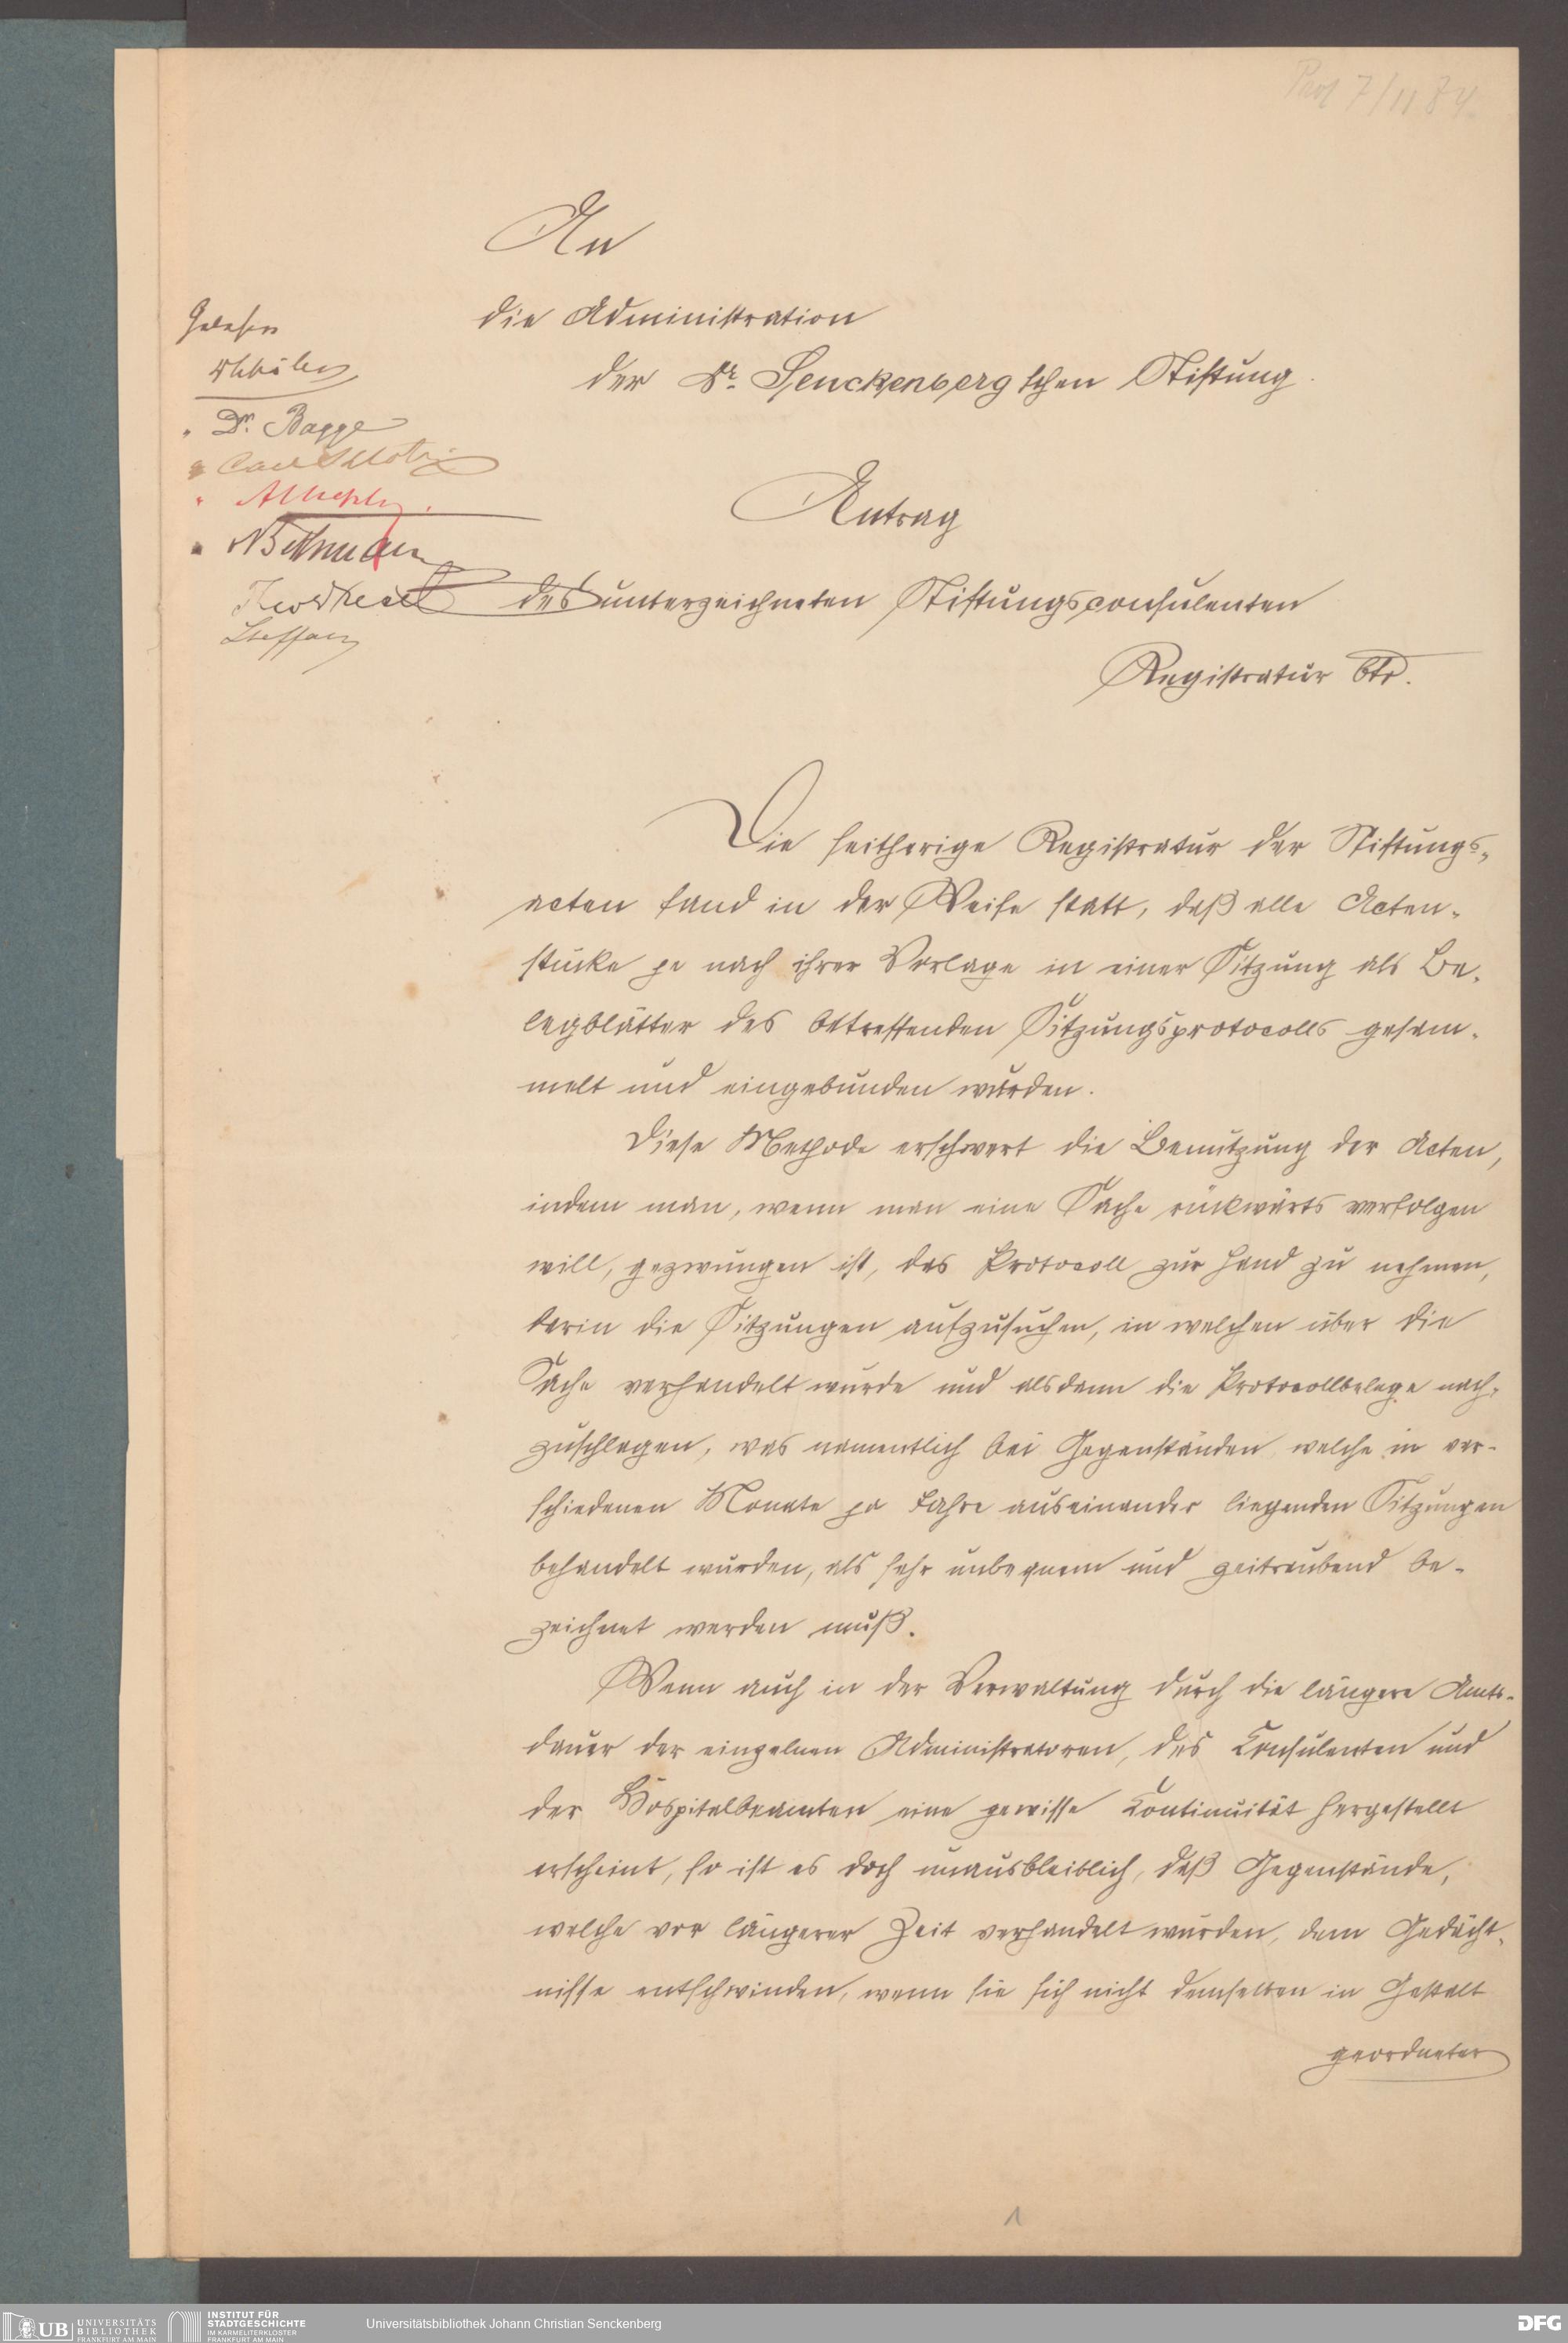 Prot 7/11 84
An
die Administration
der Dr. Senckenbergschen Stiftung.
Gelesen
" Dr. Bagge
Steffan
Antrag
des unterzeichneten Stiftungsconsulenten
Registratur btr.
Die seitherige Registratur der Stiftungs-
acten fand in der Weise statt, daß alle Acten-
stücke je nach ihrer Vorlage in einer Sitzung als Be-
legblätter des betreffenden Sitzungsprotocolls gesam-
melt und eingebunden wurden.
Diese Methode erschwert die Benutzung der Acten,
indem man, wenn man eine Sache rückwärts verfolgen
will, gezwungen ist, das Protocoll zur Hand zu nehmen,
darin die Sitzungen aufzusuchen, in welchen über die
Sache verhandelt wurde und alsdann die Protocollbelege nach-
zuschlagen, was namentlich bei Gegenständen welche in ver-
schiedenen Monate ja Jahre auseinander liegenden Sitzungen
behandelt wurden, als sehr unbequem und zeitraubend be-
zeichnet werden muß.
Wenn auch in der Verwaltung durch die längere Amts-
dauer der einzelnen Administratoren, des Consulenten und
der Hospitalbeamten eine gewisse Continuität hergestellt
erscheint, so ist es doch unausbleiblich, daß Gegenstände,
welche vor längerer Zeit verhandelt wurden, dem Gedächt-
nisse entschwinden, wenn sie sich nicht demselben in Gestalt
geordneter
1
UB UNIVERSITÄTS
BIBLIOTHEK
FRANKFURT AM MAIN
INSTITUT FÜR
STADTGESCHICHTE
IM KARMELITERKLOSTER
FRANKFURT AM MAIN
Universitätsbibliothek Johann Christian Senckenberg
DFG